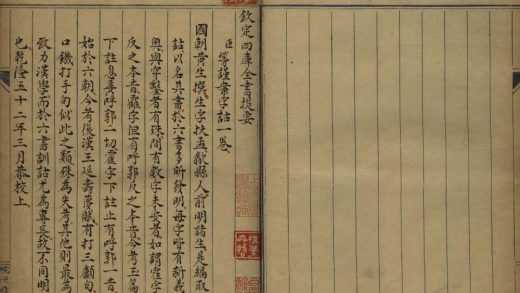 欽定四庫全書提要
臣等謹案字詁一卷
國朝黃生撰生字扶孟歙縣人前明諸生是編取
詁以名其書於六書多所發明每字皆有新義
奧與穿鑿者有殊間有數字未安者如謂字
反之本音靃字但有呼郭反之本音今考玉篇
下註息委呼郭二切霍字下註止有呼郭一音
始於六朝今考後漢王延壽夢賦有打三顱句
口鐵打手句似此之類殊為失考其他則最為
致力漢學而於六書訓詁尤為專長故不同明
也乾隆五十二年三月恭校上